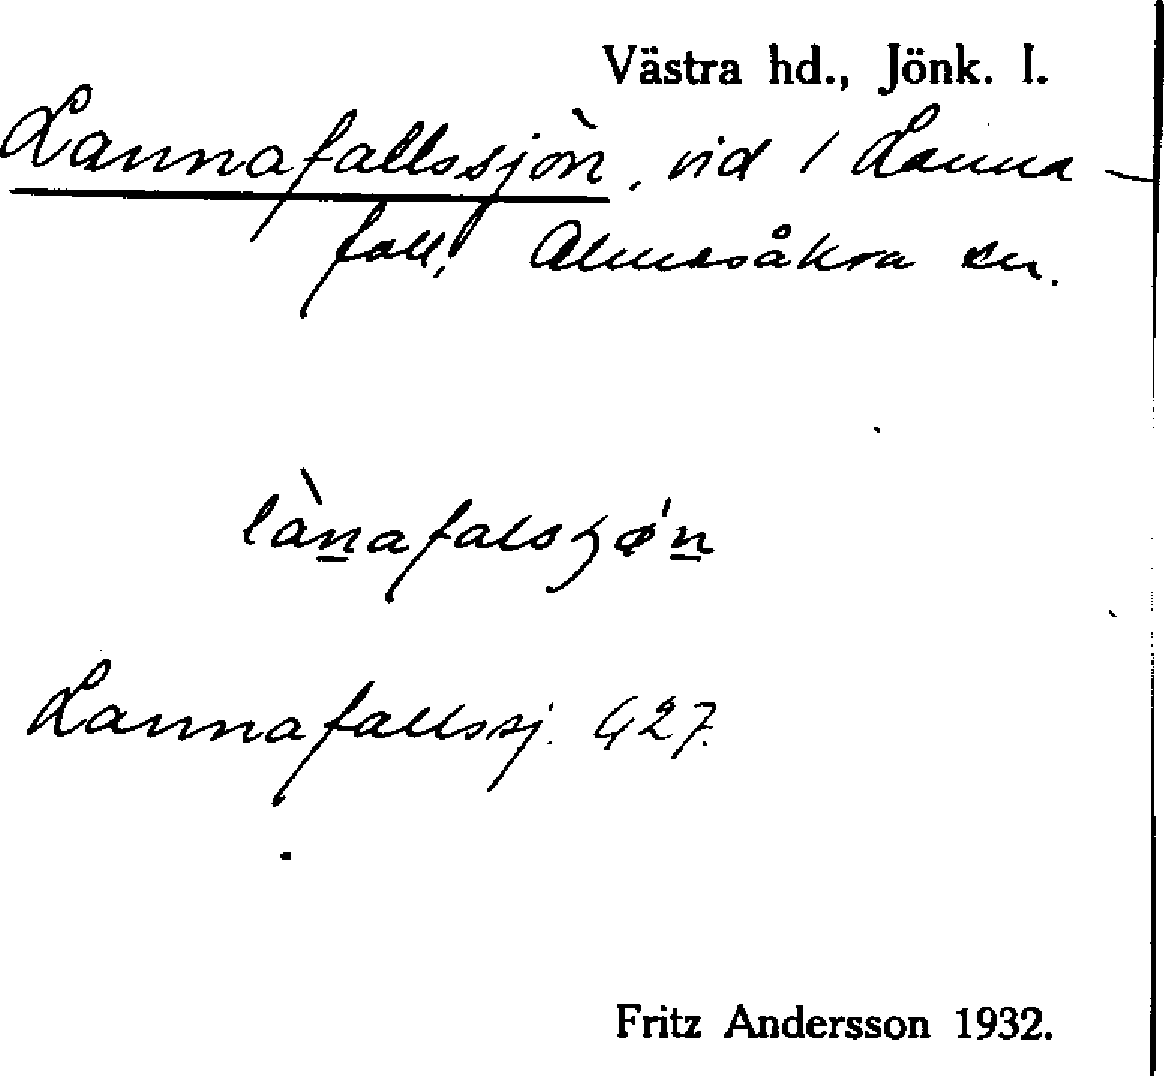 Västra hd., Jönk. l.
Lannafallssjön, vid / Lanna-
fall, Almesåkra sn.
lànafalsʒǿn
Lannafallssj. G27.
Fritz Andersson 1932.